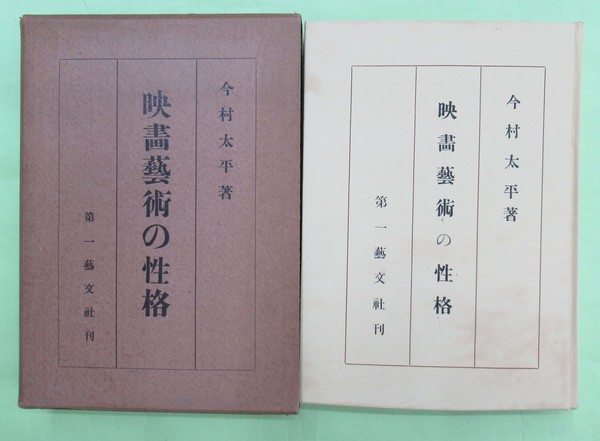 今村太平著
映畫藝術の性格
第一藝文社刊
今村太平著
映畫藝術の性格
第一藝文社刊